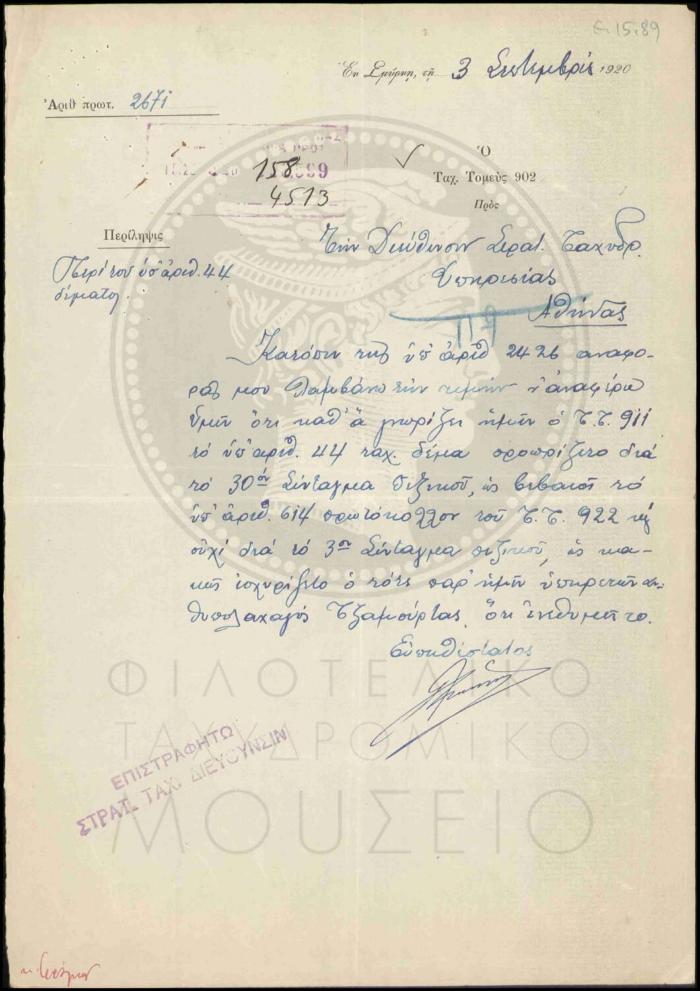 ε.15.89
Ἐν Σμύρνῃ, τῇ 3 Σεπτεμβρίς 1920
Ἀριθ πρωτ. 2671
158
4513
Ὁ
Ταχ. Τομεὺς 902
Πρὸς
Περίληψις
Περὶ τοῦ ὑπ' ἀριθ. 44
δέματος.
Τὴν Διεύθυνσιν Στρατ. Ταχυδρ.
Ὑπηρεσίας
Ἀθήνας
Κατόπιν τῆς ὑπ' ἀριθ 2426 ἀναφο-
ρᾶς μου λαμβάνω τὴν τιμὴν ν' ἀναφέρω
ὑμῖν ὅτι καθ' ἃ γνωρίζει ἡμῖν ὁ Τ.Τ. 911
τὸ ὑπ' ἀριθ. 44 ταχ. δέμα προωρίζετο διὰ
τὸ 30ὸν Σύνταγμα Πεζικοῦ, ὡς βεβαιοῖ τὸ
ὑπ' ἀριθ. 614 πρωτόκολλον τοῦ Τ.Τ. 922 καὶ
οὐχὶ διὰ τὸ 3ον Σύνταγμα πεζικοῦ, ὡς κα-
κῶς ἰσχυρίζετο ὁ τότε παρ' ἡμῖν ὑπηρετῶν ἀν-
θυπολοχαγὸς Τζαμούρτας, ὅτι ἐνεθυμεῖτο.
Εὐπειθέστατος
ΕΠΙΣΤΡΑΦΗΤΩ
ΣΤΡΑΤ. ΤΑΧ. ΔΙΕΥΘΥΝΣΙΝ
ΦΙΛΟΤΕΛΙΚΟ
ΤΑΧΥΔΡΟΜΙΚΟ
ΜΟΥΣΕΙΟ